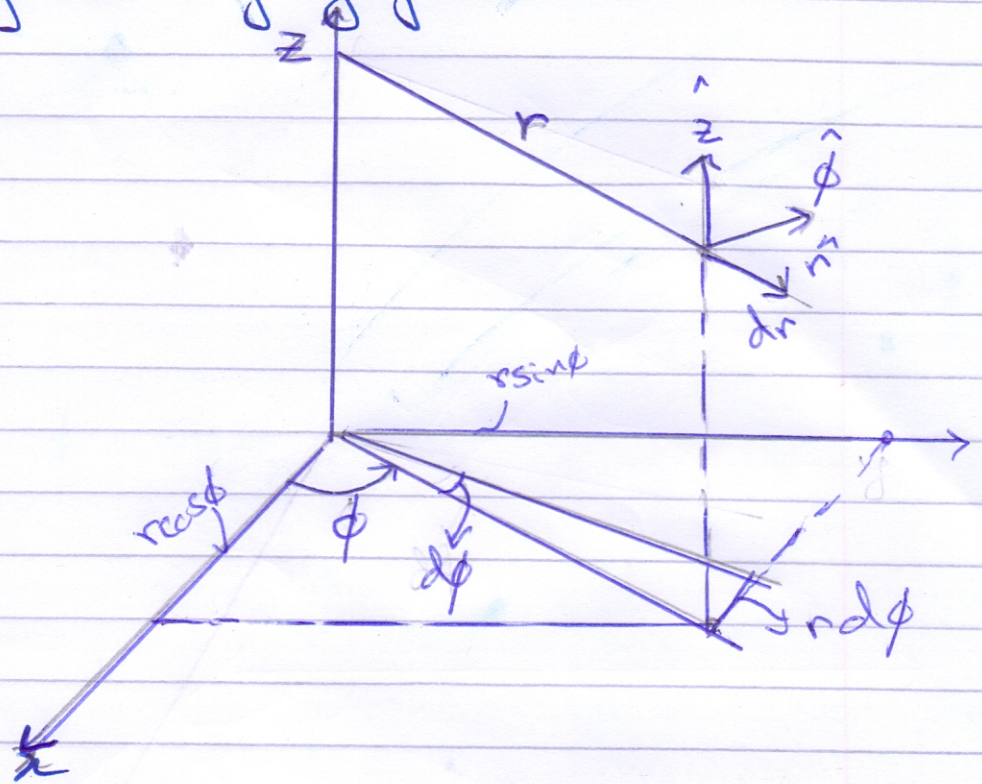 z
r
^
z
ϕ̂
r̂
dr
rsinϕ
rcosϕ
ϕ
dϕ
rdϕ
x